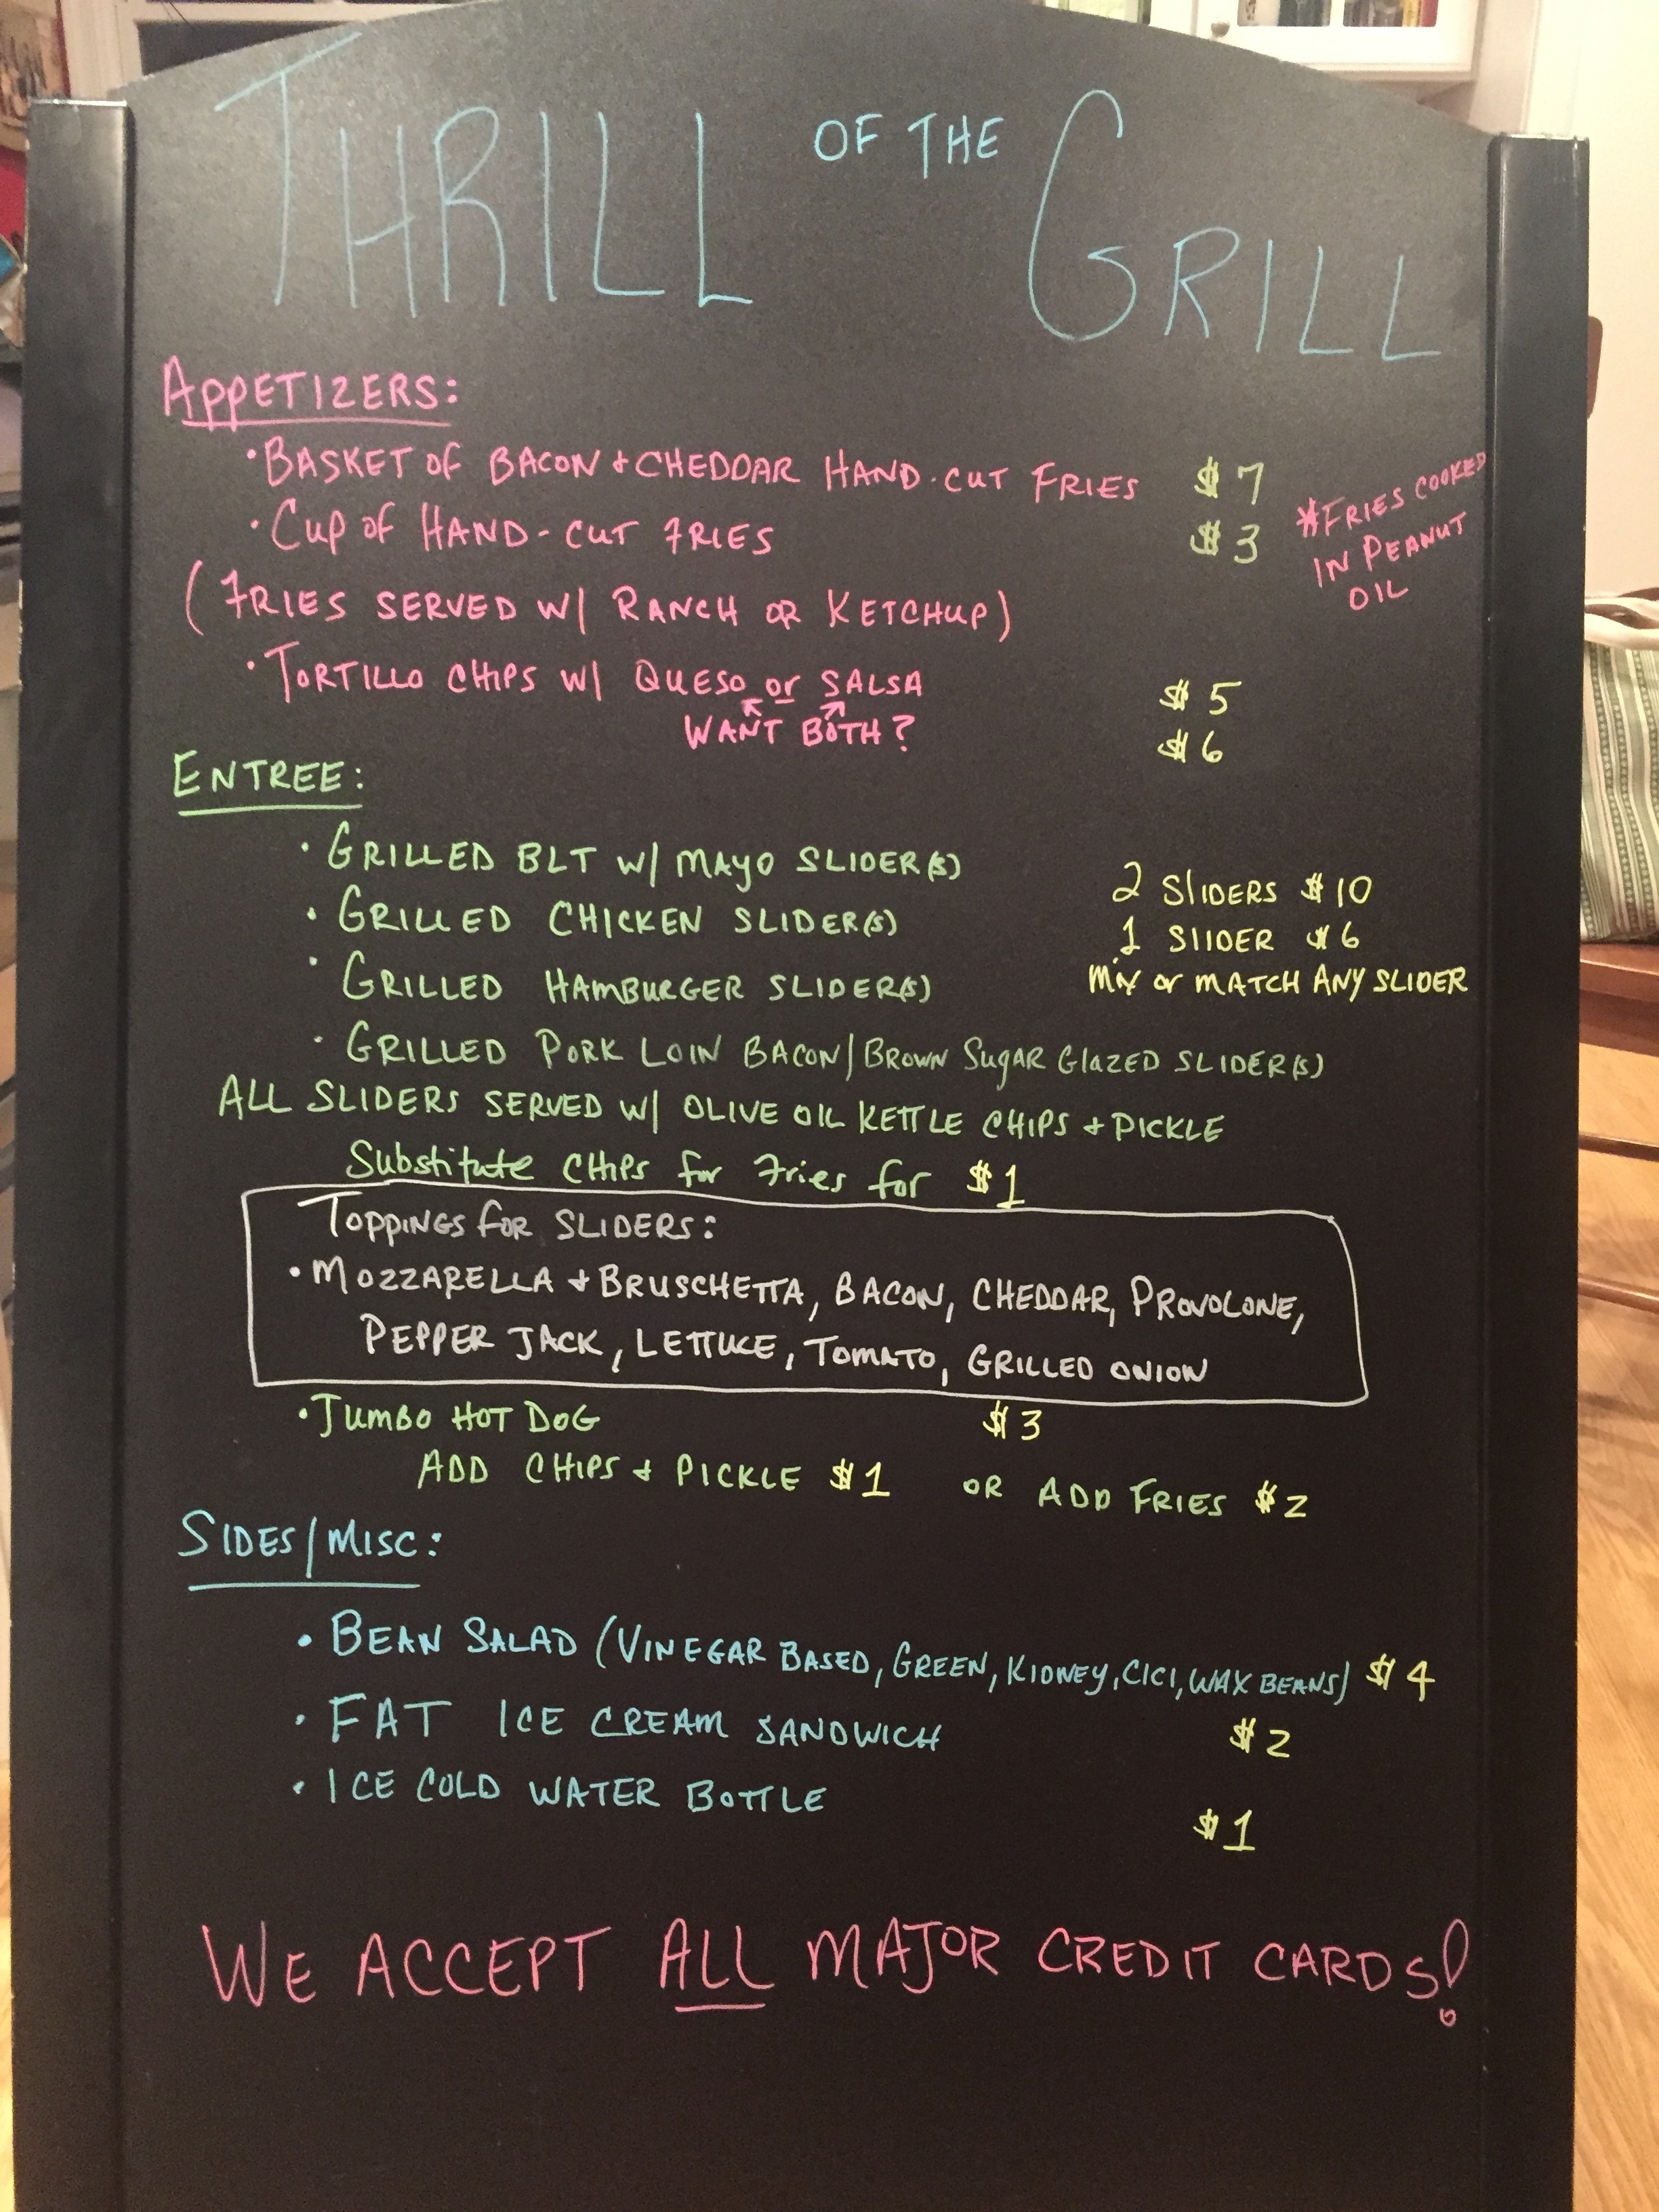 THRILL OF THE GRILL
APPETIZERS:
• BASKET OF BACON + CHEDDAR HAND-CUT FRIES $7
• CUP OF HAND-CUT FRIES $3
*FRIES COOKED
IN PEANUT
OIL
(FRIES SERVED W/ RANCH OR KETCHUP)
• TORTILLO CHIPS W/ QUESO or SALSA $5
WANT BOTH? $6
ENTREE:
• GRILLED BLT W/ MAYO SLIDER(S)
• GRILLED CHICKEN SLIDER(S)
• GRILLED HAMBURGER SLIDER(S)
2 SLIDERS $10
1 SLIDER $6
MIX or MATCH ANY SLIDER
• GRILLED PORK LOIN BACON/BROWN SUGAR GLAZED SLIDER(S)
ALL SLIDERS SERVED W/ OLIVE OIL KETTLE CHIPS + PICKLE
Substitute CHIPS for Fries for $1
TOPPINGS FOR SLIDERS:
• MOZZARELLA + BRUSCHETTA, BACON, CHEDDAR, PROVOLONE,
PEPPER JACK, LETTUCE, TOMATO, GRILLED ONION
• JUMBO HOT DOG $3
ADD CHIPS + PICKLE $1 OR ADD FRIES $2
SIDES/MISC:
• BEAN SALAD (VINEGAR BASED, GREEN, KIDNEY, CICI, WAX BEANS) $4
• FAT ICE CREAM SANDWICH $2
• ICE COLD WATER BOTTLE $1
WE ACCEPT ALL MAJOR CREDIT CARDS!